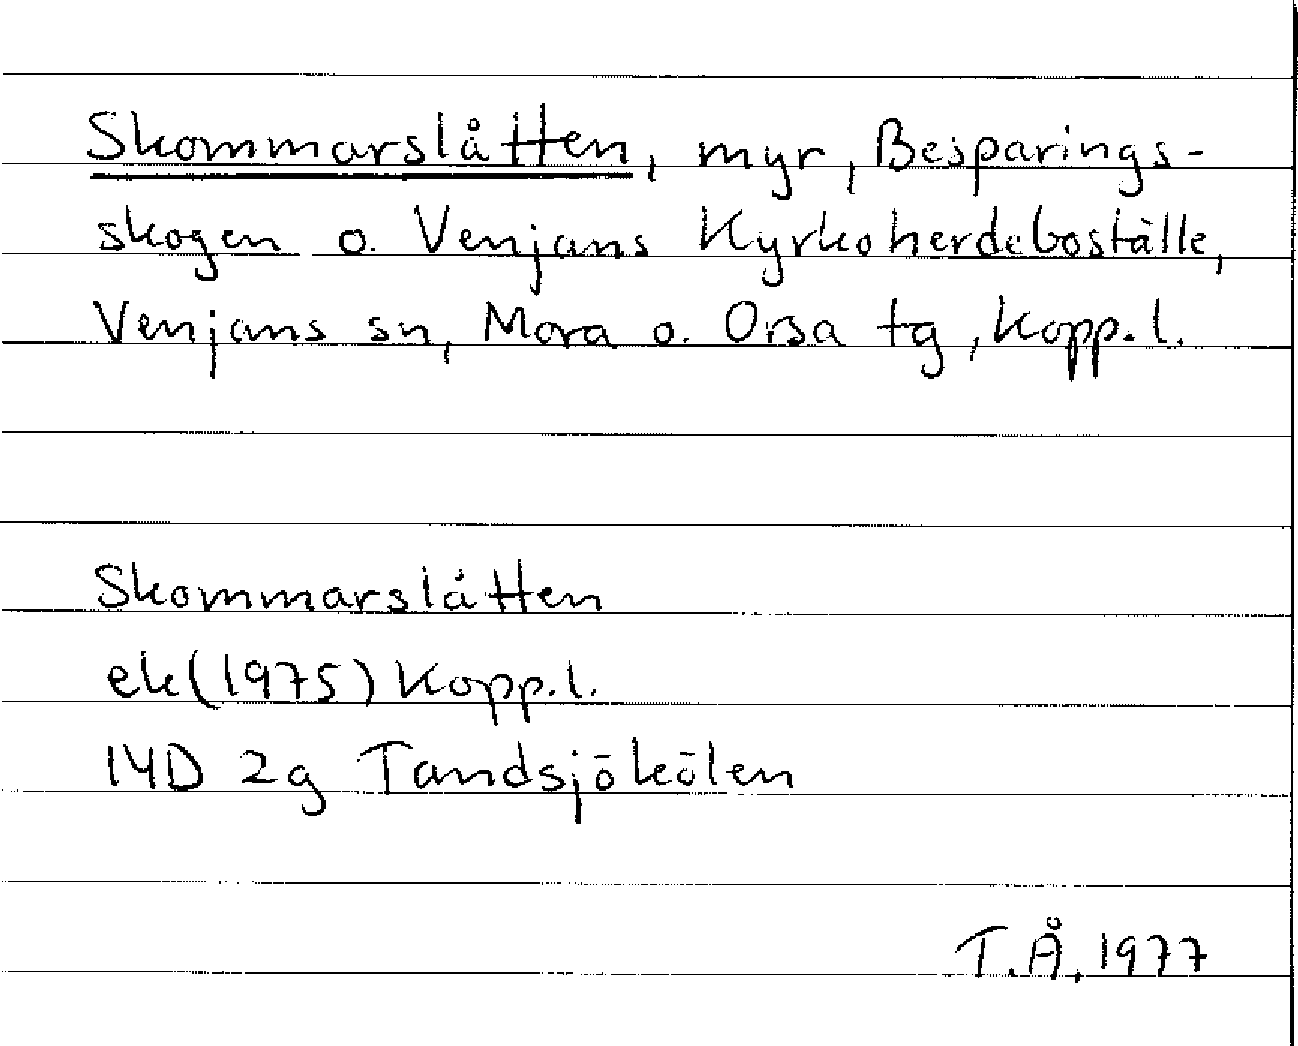 Skommarslåtten, myr, Besparings-
skogen o. Venjans Kyrkoherdeboställe,
Venjans sn, Mora o. Orsa tg, Kopp. l.
Skommarslåtten
ek (1975) Kopp. l.
14D 2g Tandsjökölen
T.Å. 1977